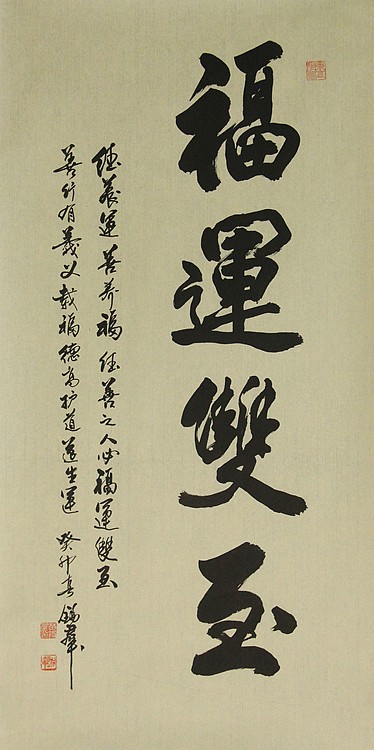 福運雙至
德養運善养福德善之人必福運雙至
善行有義必載福德高护道道生運癸卯春錫群